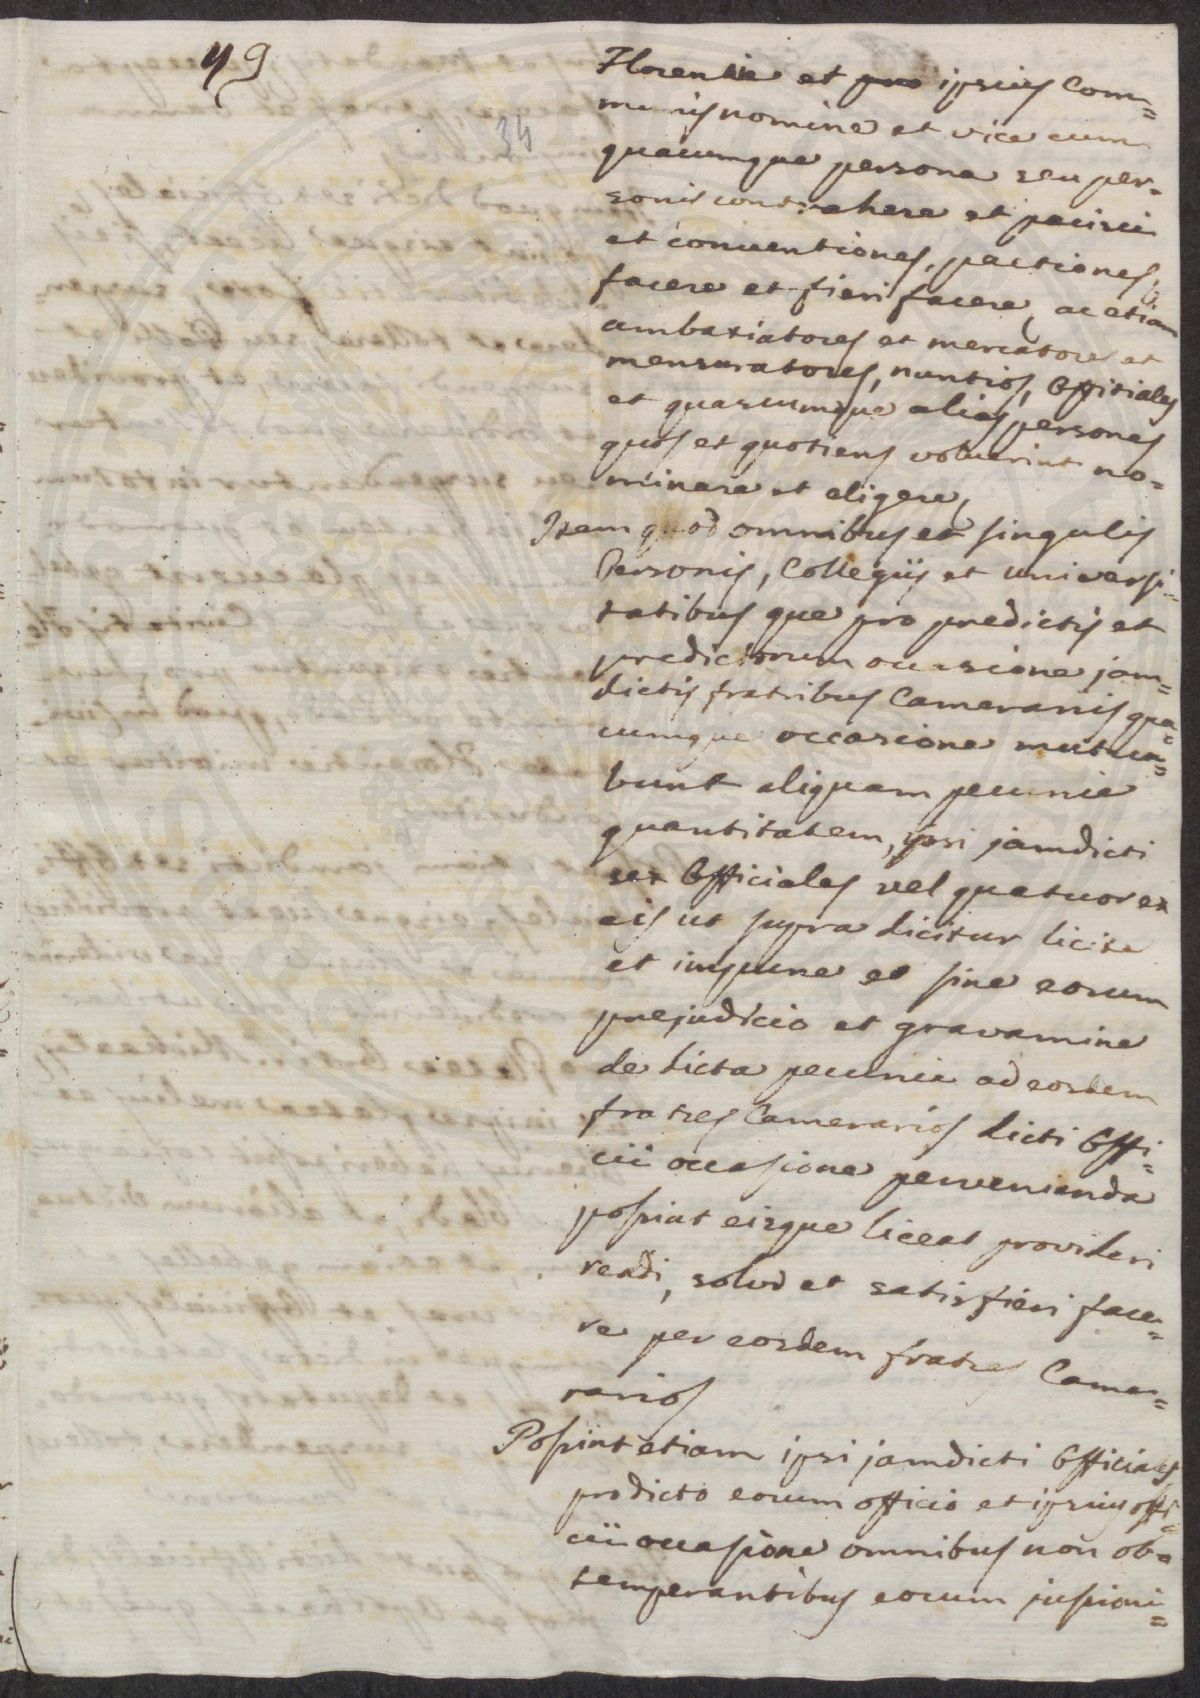 49
34
Florentie et pro ipsius Com=
munis nomine et vice cum
quacumque persona seu per=
sonis contrahere et pacisci
et conventiones, pactiones,
facere et fieri facere, ac etiam
ambaxiatores et mercatores et
mensuratores, nuntios, Offitiales
et quascumque alias personas
quos et quotiens voluerint no=
minare et eligere,
Item quod omnibus et singulis
Personis, Collegiis et universi=
tatibus que pro predictis et
predictorum occasione jam=
dictis fratribus Camerariis qua=
cumque occasione mutua=
bunt aliquam pecunie
quantitatem, ipsi jamdicti
sex Officiales vel quatuor ex
eis ut supra dicitur licite
et impune et sine eorum
prejudicio et gravamine
de dicta pecunia ad eosdem
fratres Camerarios dicti Offi=
cii occasione pervenienda
possint eisque liceat provideri
reddi, solvi et satisfieri face=
re per eosdem fratres Came=
rarios
Possint etiam ipsi jamdicti Officiales
predicto eorum officio et ipsius offi=
cii occasione omnibus non ob=
temperantibus eorum jussioni=